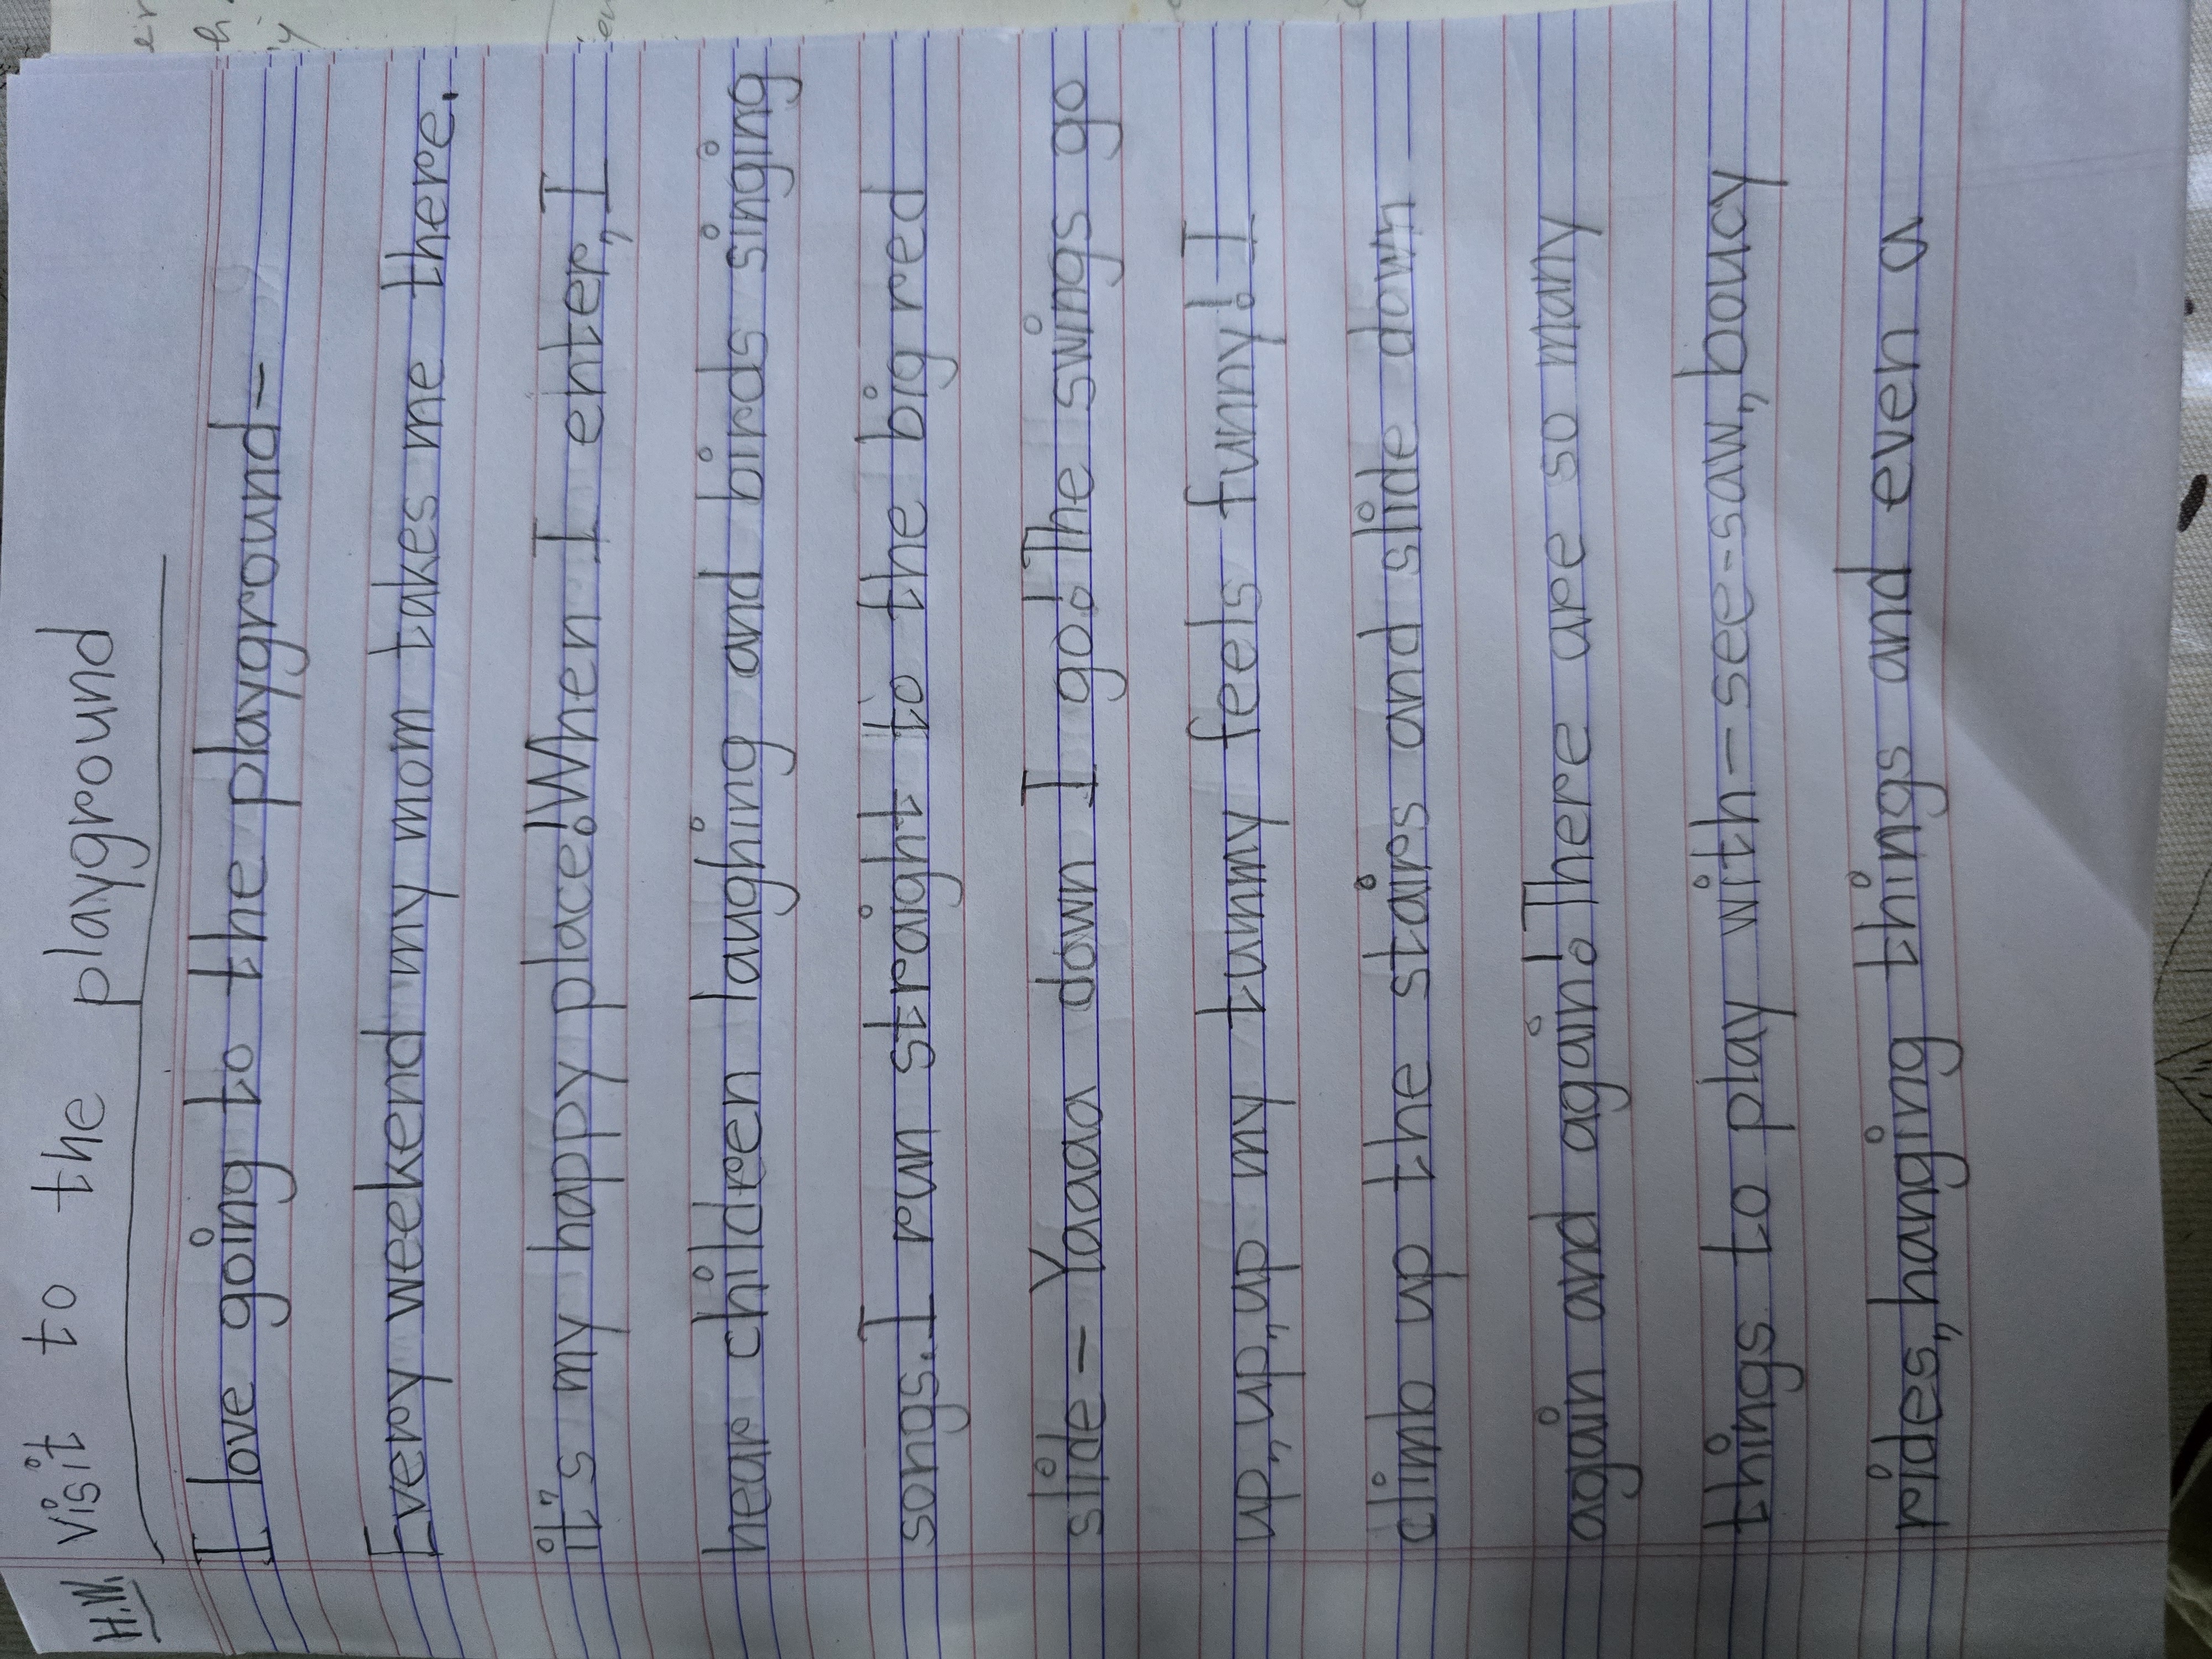 H.W. visit to the playground
I love going to the playground-
Every weekend my mom takes me there.
it's my happy place! When I enter, I
hear childeen laughing and birds singing
songs. I run straight to the big red
slide - Yaaa down I go! The swings go
up, up, up my tummy feels funny! I
climb up the stairs and slide down
again and again! There are so many
things to play with - see-saw, boucy
rides, hanging things and even a